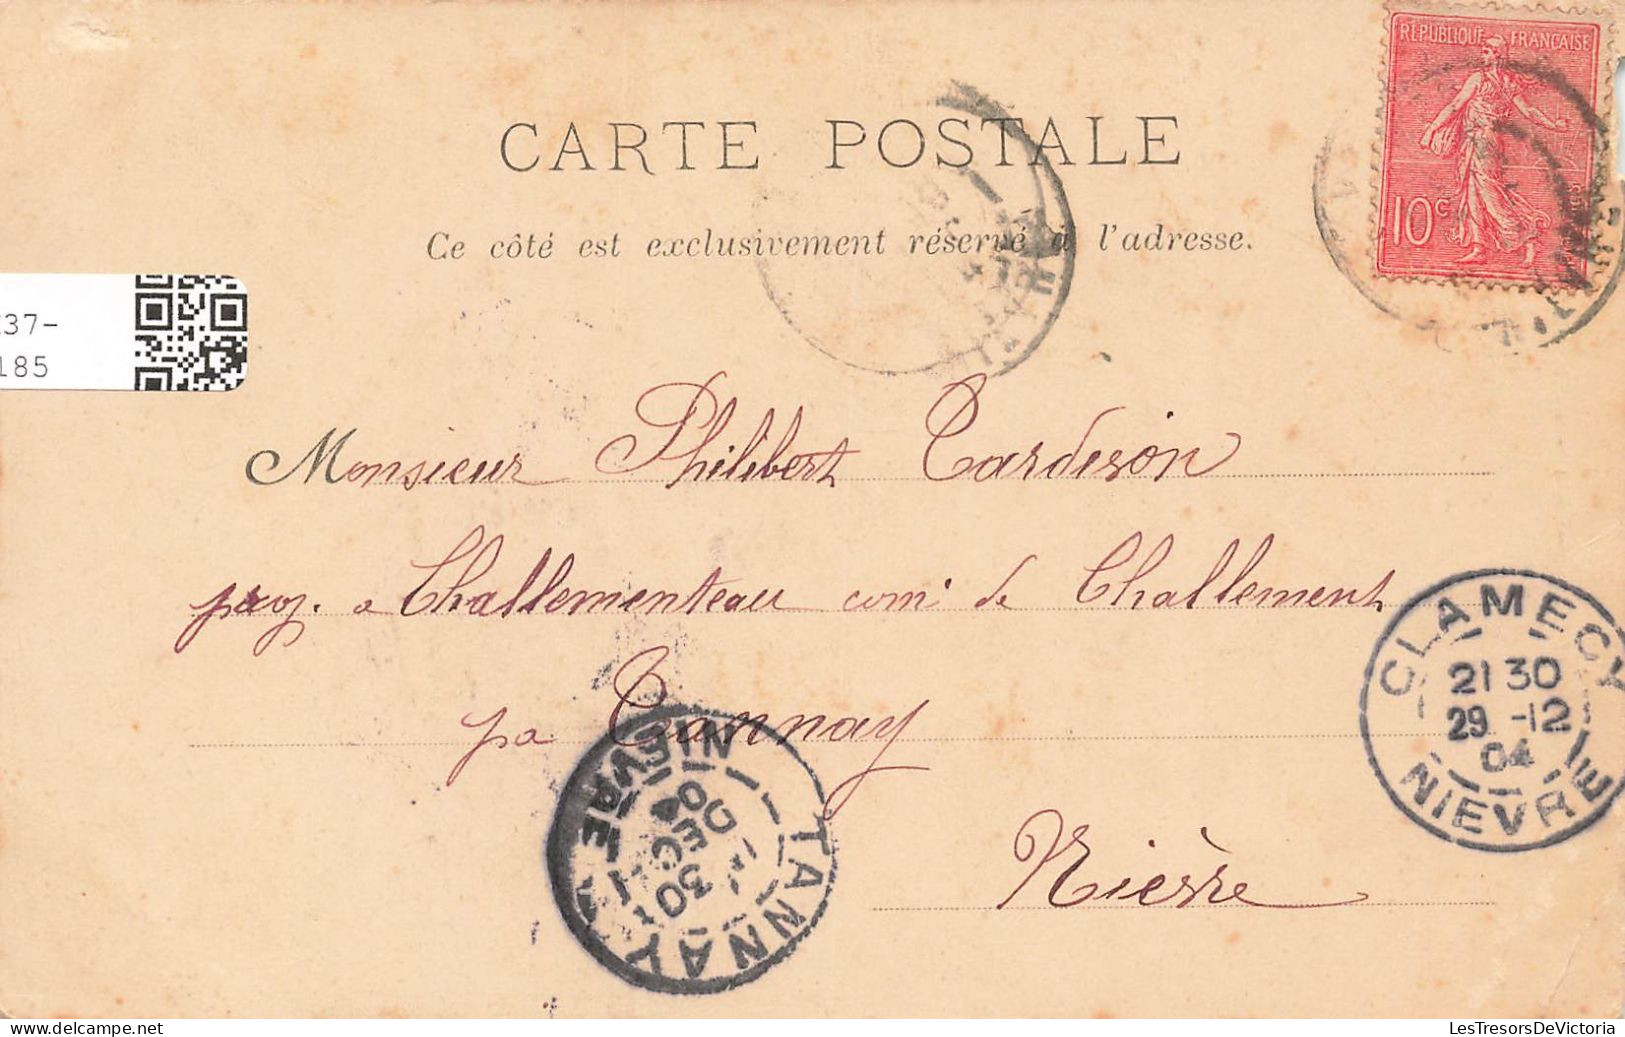 RÉPUBLIQUE FRANÇAISE
10c
CARTE POSTALE
Ce côté est exclusivement réservé à l'adresse.
37-
185
Monsieur Philibert Tardeson
à Challementeau com: de Challement
pa Tannay
Nièvre
CLAMECY
21 30
29 -12
04
NIEVRE
TANNAY
30
DEC
04
NIEVRE
LesTresorsDeVictoria